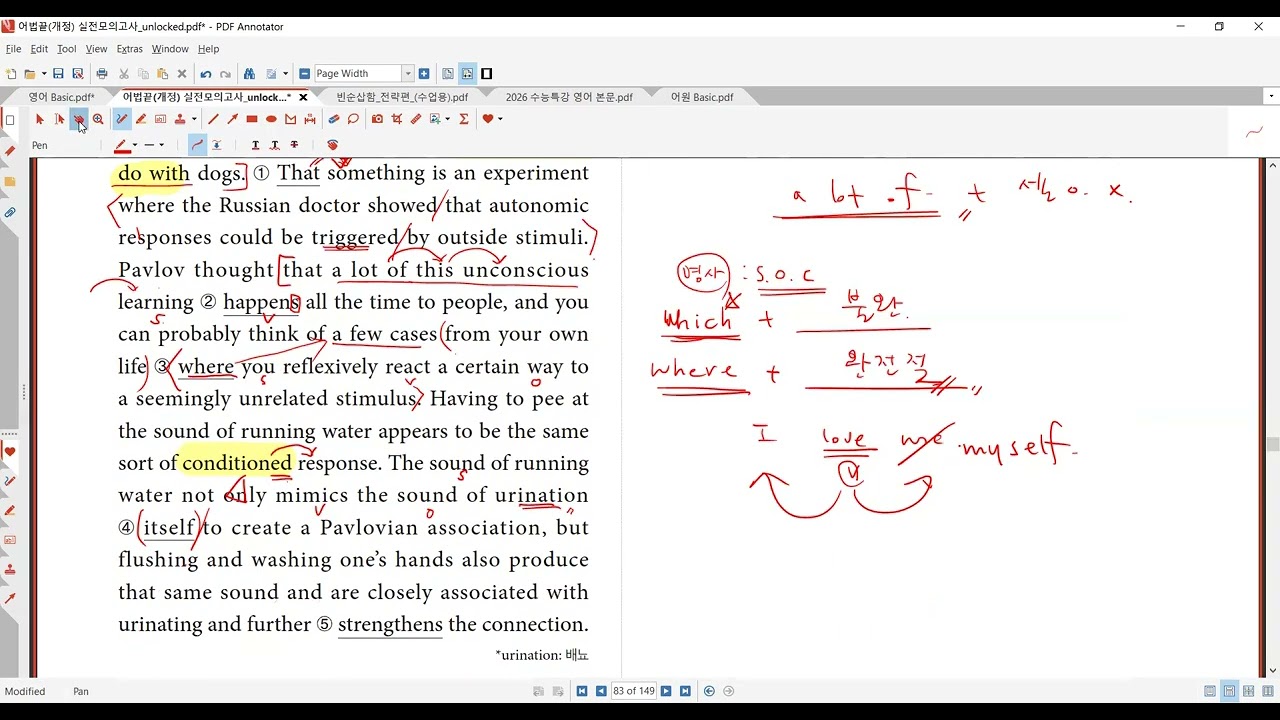 어법끝(개정) 실전모의고사_unlocked.pdf* - PDF Annotator
File Edit Tool View Extras Window Help
Page Width
영어 Basic.pdf* 어법끝(개정) 실전모의고사_unlock...* 빈순삽함_전략편_(수업용).pdf 2026 수능특강 영어 본문.pdf 어원 Basic.pdf
Pen
do with dogs. ① That something is an experiment
where the Russian doctor showed that autonomic
responses could be triggered by outside stimuli.
Pavlov thought that a lot of this unconscious
learning ② happens all the time to people, and you
can probably think of a few cases from your own
life ③ where you reflexively react a certain way to
a seemingly unrelated stimulus. Having to pee at
the sound of running water appears to be the same
sort of conditioned response. The sound of running
water not only mimics the sound of urination
④ itself to create a Pavlovian association, but
flushing and washing one's hands also produce
that same sound and are closely associated with
urinating and further ⑤ strengthens the connection.
*urination: 배뇨
a lot of + 셀 o. x.
명사 : S.O.C
which + 불완.
where + 완전절
I love me myself.
V
Modified Pan 83 of 149